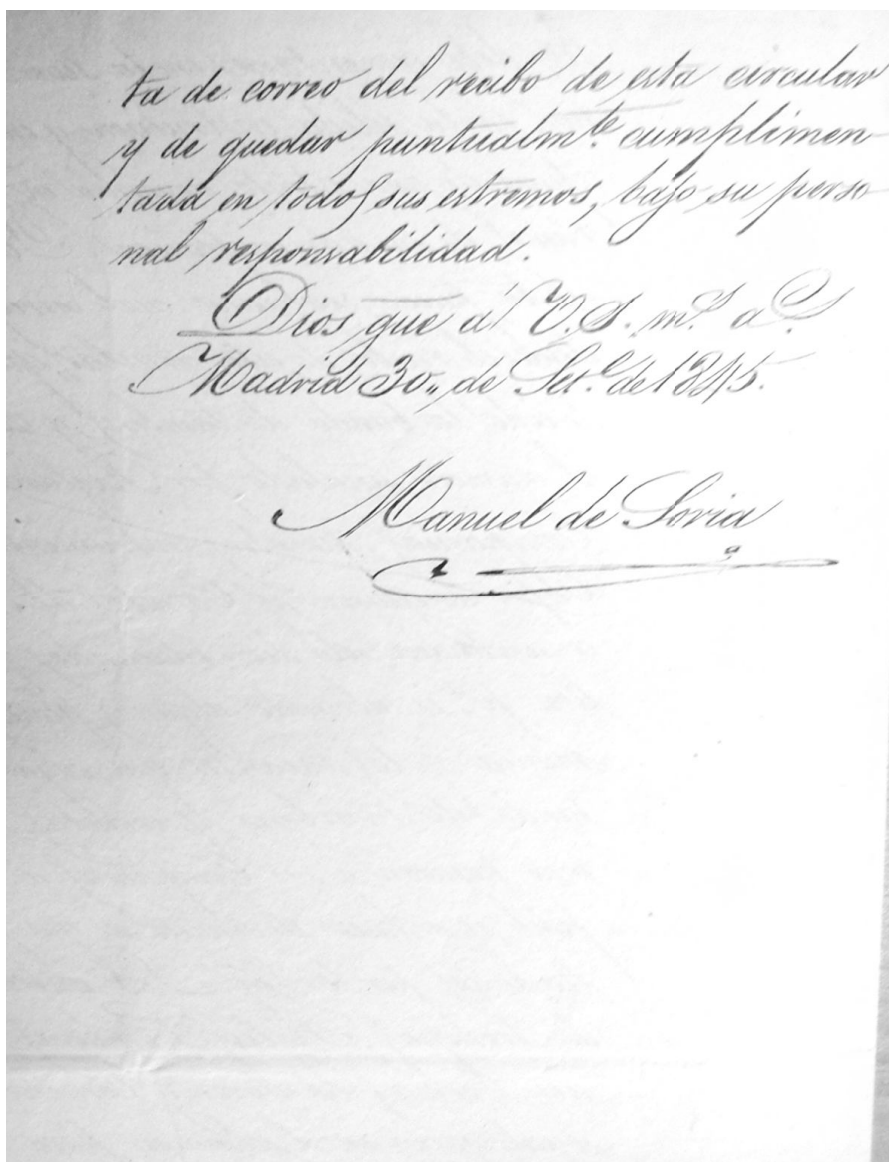 ta de correo del recibo de esta circular
y de quedar puntualmte. cumplimen
tada en todos sus estremos, bajo su perso
nal responsabilidad.
Dios gue á V.S. ms. as
Madrid 30,, de Set.e de 1845.
Manuel de Soria